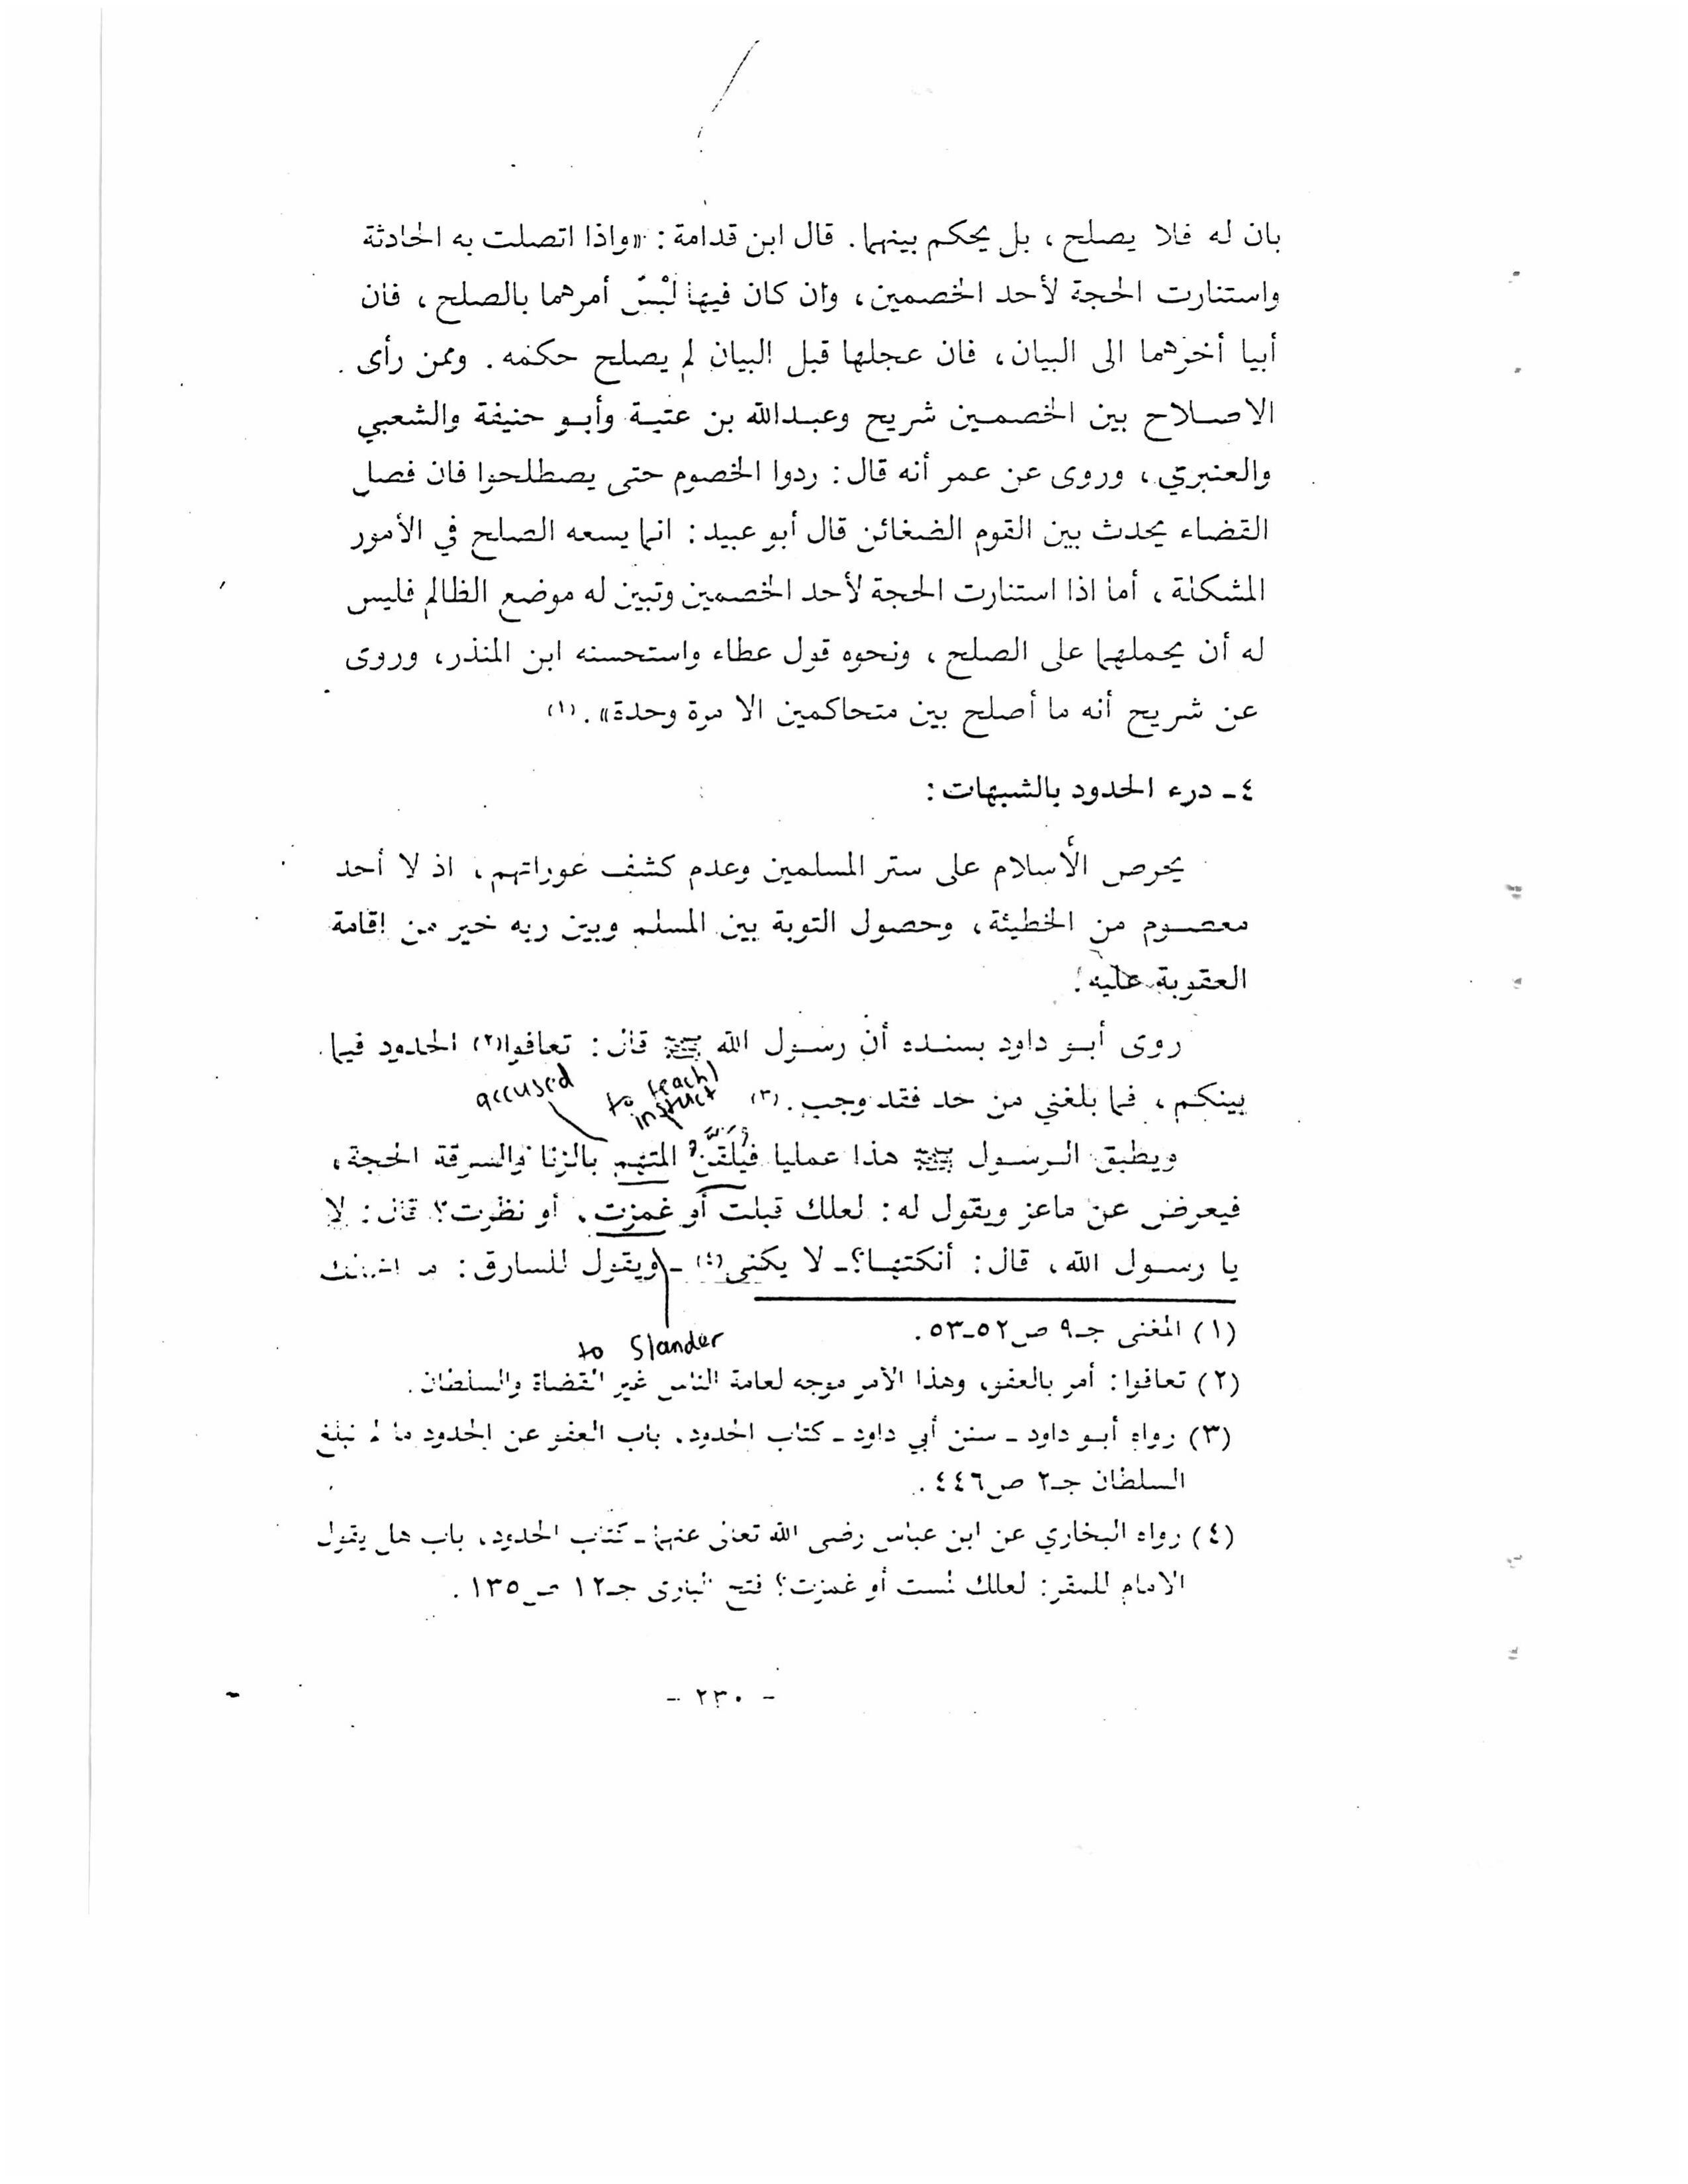 بان له فلا يصلح، بل يحكم بينهما. قال ابن قدامة: «واذا اتصلت به الحادثة
واستنارت الحجة لأحد الخصمين، وان كان فيها لَبْسٌ أمرهما بالصلح، فان
أبيا أخرهما الى البيان، فان عجلها قبل البيان لم يصلح حكمه. وممن رأى
الاصلاح بين الخصمين شريح وعبدالله بن عتبة وأبو حنيفة والشعبي
والعنبري، وروى عن عمر أنه قال: ردوا الخصوم حتى يصطلحوا فان فصل
القضاء يحدث بين القوم الضغائن قال أبو عبيد: انما يسعه الصلح في الأمور
المشكلة، أما اذا استنارت الحجة لأحد الخصمين وتبين له موضع الظالم فليس
له أن يحملهما على الصلح، ونحوه قول عطاء واستحسنه ابن المنذر، وروى
عن شريح أنه ما أصلح بين متحاكمين الا مرة وحدة». (١)
٤ـ درء الحدود بالشبهات:
يحرص الأسلام على ستر المسلمين وعدم كشف عوراتهم، اذ لا أحد
معصوم من الخطيئة، وحصول التوبة بين المسلم وبين ربه خير من إقامة
العقوبة عليه.
روى أبو داود بسنده أن رسول الله ﷺ قال: تعافوا(٢) الحدود فيما
accused
to teach/
instruct
بينكم، فما بلغني من حد فقد وجب. (٣)
ويطبق الرسول ﷺ هذا عمليا فيُلَقِّنُ المتهم بالزنا والسرقة الحجة،
فيعرض عن ماعز ويقول له: لعلك قبلت أو غمزت. أو نظرت؟ قال: لا
يا رسول الله، قال: أنكتها؟ـ لا يكنى(٤) ـ ويقول للسارق: ما
to Slander
(١) المغنى جـ٩ ص٥٢ـ٥٣.
(٢) تعافوا: أمر بالعفو، وهذا الأمر موجه لعامة الناس غير القضاة والسلطان.
(٣) رواه أبو داود ـ سنن أبي داود ـ كتاب الحدود. باب العفو عن الحدود ما لم تبلغ
السلطان جـ٢ ص٤٤٦.
(٤) رواه البخاري عن ابن عباس رضى الله تعالى عنهما ـ كتاب الحدود، باب هل يقول
الامام للمقر: لعلك لمست أو غمزت؟ فتح البارى جـ١٢ ص١٣٥.
- ٢٣٠ -